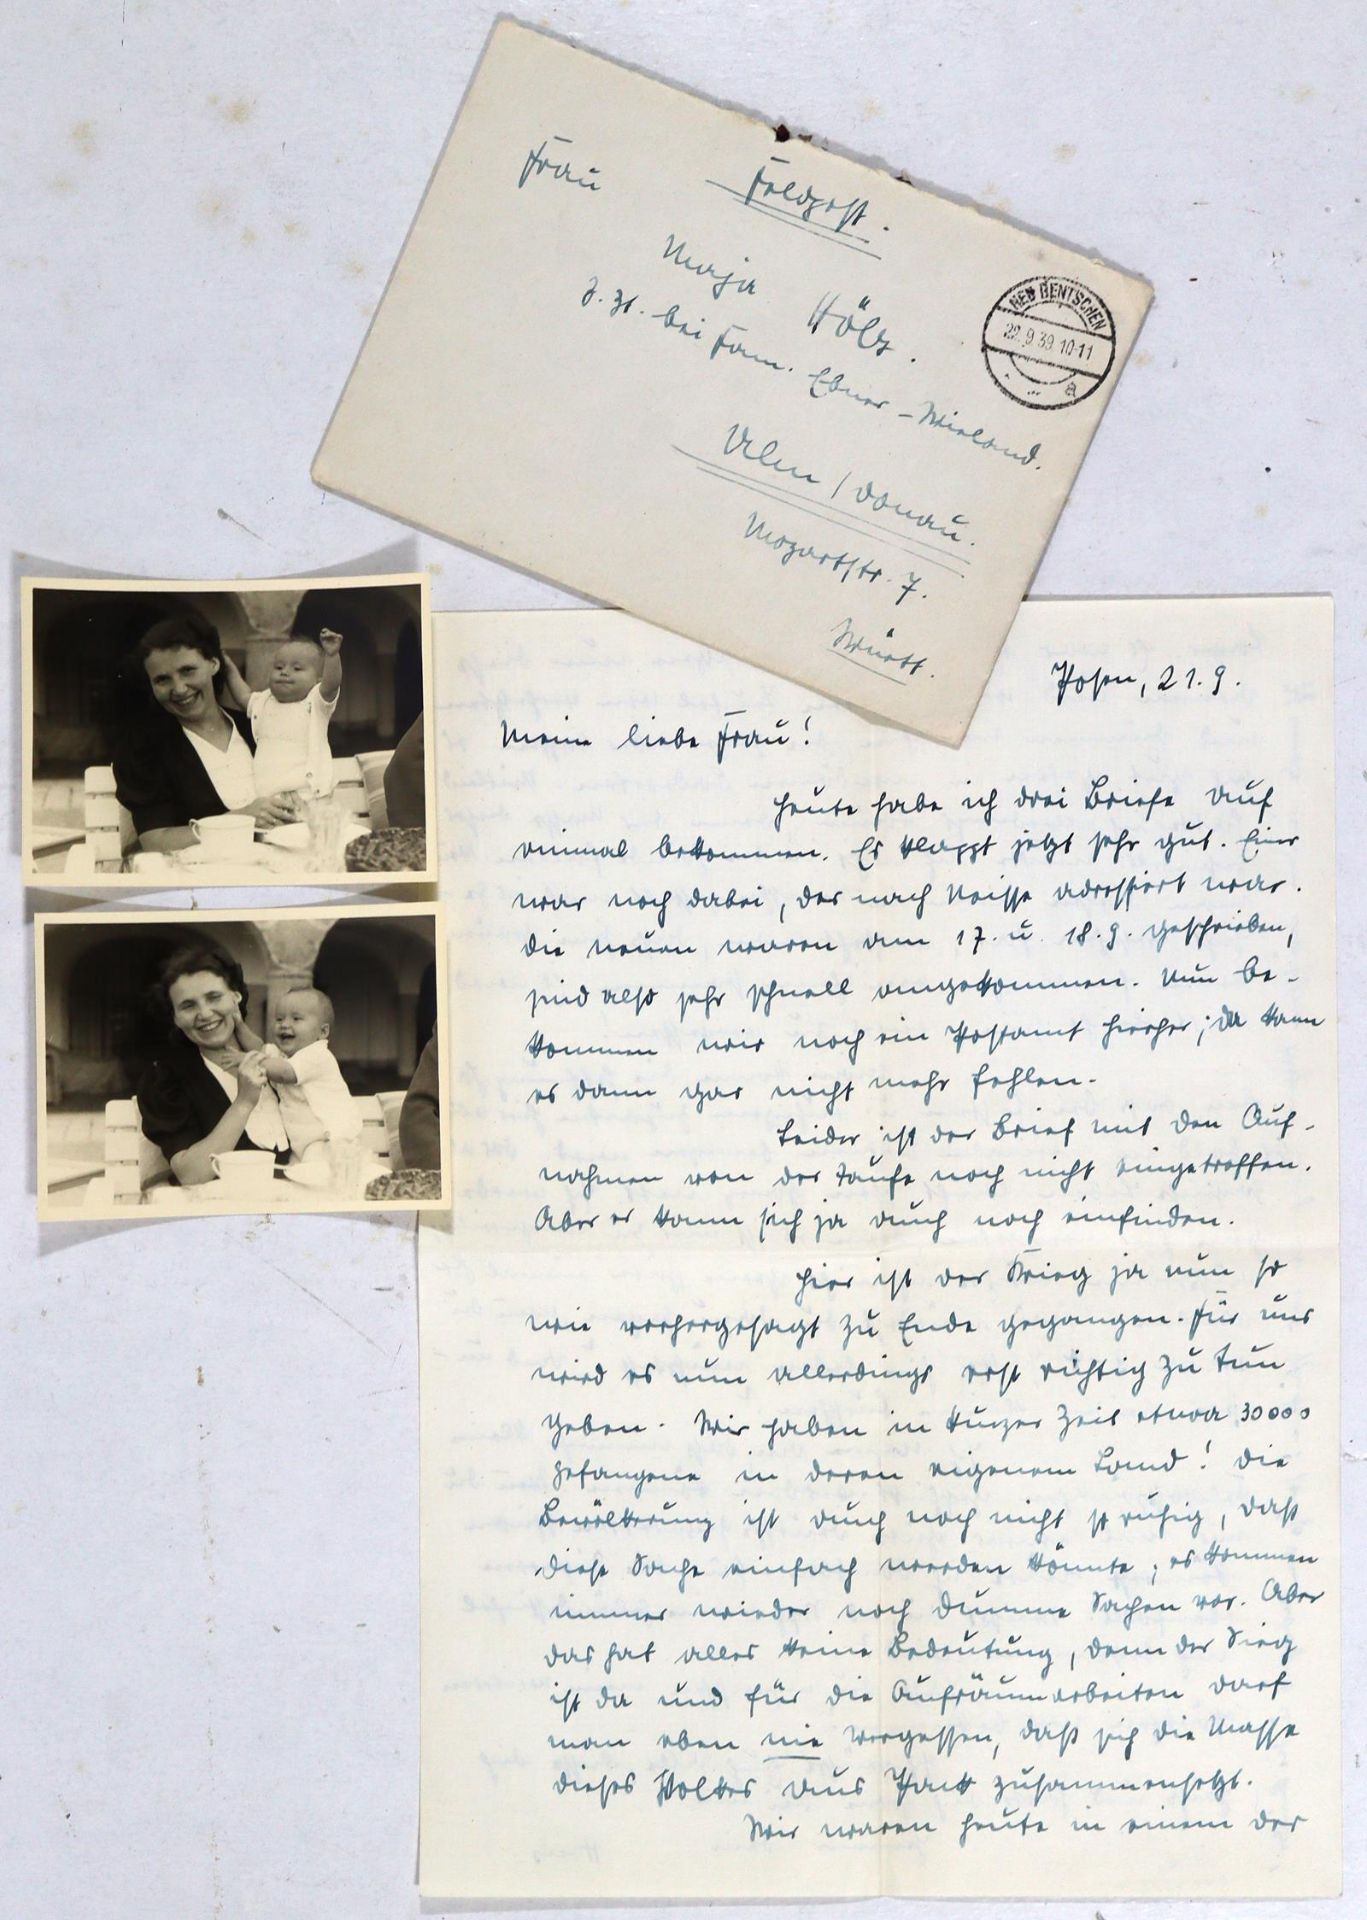 Frau
Feldpost.
Maja Hölz.
z. Zt. bei Fam. Ebner-Wieland.
Ulm / Donau.
Mozartstr. 7.
Württ.
NEU BENTSCHEN
22.9.39.10-11
a
Posen, 21.9.
Meine liebe Frau!
Heute habe ich drei Briefe auf
einmal bekommen. Es klappt jetzt sehr gut. Einer
war noch dabei, der nach Neisse adressiert war.
Die neuen waren am 17. u. 18.9. geschrieben,
sind also sehr schnell angekommen. Nun be-
kommen wir noch ein Postamt hierher; da kann
es dann gar nicht mehr fehlen.
Leider ist der Brief mit den Auf-
nahmen von der Taufe noch nicht eingetroffen.
Aber er kann sich ja auch noch einfinden.
Hier ist der Krieg ja nun so
wie vorhergesagt zu Ende gegangen. Für uns
wird es nun allerdings erst richtig zu tun
geben. Wir haben in kurzer Zeit etwa 30000
Gefangene in deren eigenem Land! Die
Bevölkerung ist auch noch nicht so ruhig, daß
diese Sache einfach werden könnte; es kommen
immer wieder noch dumme Sachen vor. Aber
das hat alles keine Bedeutung, denn der Sieg
ist da und für die Aufräumarbeiten darf
man eben nie vergessen, daß sich die Masse
dieses Volkes aus Pack zusammensetzt.
Wir waren heute in einem der